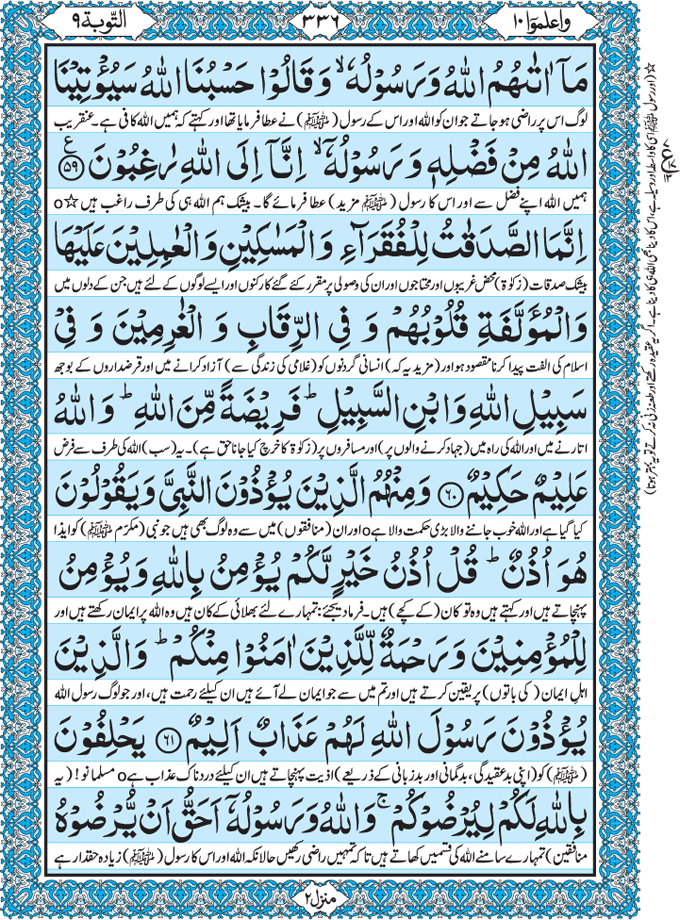 واعلموا ١٠
٣٣٦
التّوبة ٩
مَاۤ اٰتٰىهُمُ اللّٰهُ وَ رَسُوْلُهٗ ۙ وَ قَالُوْا حَسْبُنَا اللّٰهُ سَیُؤْتِیْنَا
لوگ اس پر راضی ہو جاتے جو ان کو اللہ اور اس کے رسول (ﷺ) نے عطا فرمایا تھا اور کہتے کہ ہمیں اللہ کافی ہے۔ عنقریب
اللّٰهُ مِنْ فَضْلِهٖ وَ رَسُوْلُهٗۤ ۙ اِنَّاۤ اِلَی اللّٰهِ رٰغِبُوْنَ ﴿۵۹﴾ ع
ہمیں اللہ اپنے فضل سے اور اس کا رسول (ﷺ مزید) عطا فرمائے گا۔ بیشک ہم اللہ ہی کی طرف راغب ہیں o☆
اِنَّمَا الصَّدَقٰتُ لِلْفُقَرَآءِ وَ الْمَسٰكِیْنِ وَ الْعٰمِلِیْنَ عَلَیْهَا
بیشک صدقات (زکوٰۃ) محض غریبوں اور محتاجوں اور ان کی وصولی پر مقرر کئے گئے کارکنوں اور ایسے لوگوں کے لئے ہیں جن کے دلوں میں
وَ الْمُؤَلَّفَةِ قُلُوْبُهُمْ وَ فِی الرِّقَابِ وَ الْغٰرِمِیْنَ وَ فِیْ
اسلام کی الفت پیدا کرنا مقصود ہو اور (مزید یہ کہ) انسانی گردنوں کو (غلامی کی زندگی سے) آزاد کرانے میں اور قرضداروں کے بوجھ
سَبِیْلِ اللّٰهِ وَ ابْنِ السَّبِیْلِ ؕ فَرِیْضَةً مِّنَ اللّٰهِ ؕ وَ اللّٰهُ
اتارنے میں اور اللہ کی راہ میں (جہاد کرنے والوں پر) اور مسافروں پر (زکوٰۃ کا خرچ کیا جانا حق ہے)۔ یہ (سب) اللہ کی طرف سے فرض
عَلِیْمٌ حَكِیْمٌ ﴿۶۰﴾ وَ مِنْهُمُ الَّذِیْنَ یُؤْذُوْنَ النَّبِیَّ وَ یَقُوْلُوْنَ
کیا گیا ہے اور اللہ خوب جاننے والا بڑی حکمت والا ہے o اور ان (منافقوں) میں سے وہ لوگ بھی ہیں جو نبی (مکرّم ﷺ) کو ایذا
هُوَ اُذُنٌ ؕ قُلْ اُذُنُ خَیْرٍ لَّكُمْ یُؤْمِنُ بِاللّٰهِ وَ یُؤْمِنُ
پہنچاتے ہیں اور کہتے ہیں وہ تو کان (کے کچے) ہیں۔ فرما دیجئے: تمہارے لئے بھلائی کے کان ہیں وہ اللہ پر ایمان رکھتے ہیں اور
لِلْمُؤْمِنِیْنَ وَ رَحْمَةٌ لِّلَّذِیْنَ اٰمَنُوْا مِنْكُمْ ؕ وَ الَّذِیْنَ
اہلِ ایمان (کی باتوں) پر یقین کرتے ہیں اور تم میں سے جو ایمان لے آئے ہیں ان کیلئے رحمت ہیں، اور جو لوگ رسول اللہ
یُؤْذُوْنَ رَسُوْلَ اللّٰهِ لَهُمْ عَذَابٌ اَلِیْمٌ ﴿۶۱﴾ یَحْلِفُوْنَ
(ﷺ) کو (اپنی بدعقیدگی، بدگمانی اور بدزبانی کے ذریعے) اذیت پہنچاتے ہیں ان کیلئے دردناک عذاب ہے o مسلمانو! (یہ
بِاللّٰهِ لَكُمْ لِیُرْضُوْكُمْ ۚ وَ اللّٰهُ وَ رَسُوْلُهٗۤ اَحَقُّ اَنْ یُّرْضُوْهُ
منافقین) تمہارے سامنے اللہ کی قسمیں کھاتے ہیں تاکہ تمہیں راضی رکھیں حالانکہ اللہ اور اس کا رسول (ﷺ) زیادہ حقدار ہے
منزل ٢
☆ (اور رسول ﷺ اسی کا واسطہ اور وسیلہ ہے، اس کا دینا بھی اللہ ہی کا دینا ہے۔ اگر یہ عقیدہ رکھتے اور طعنہ زنی نہ کرتے تو یہ بہتر ہوتا)